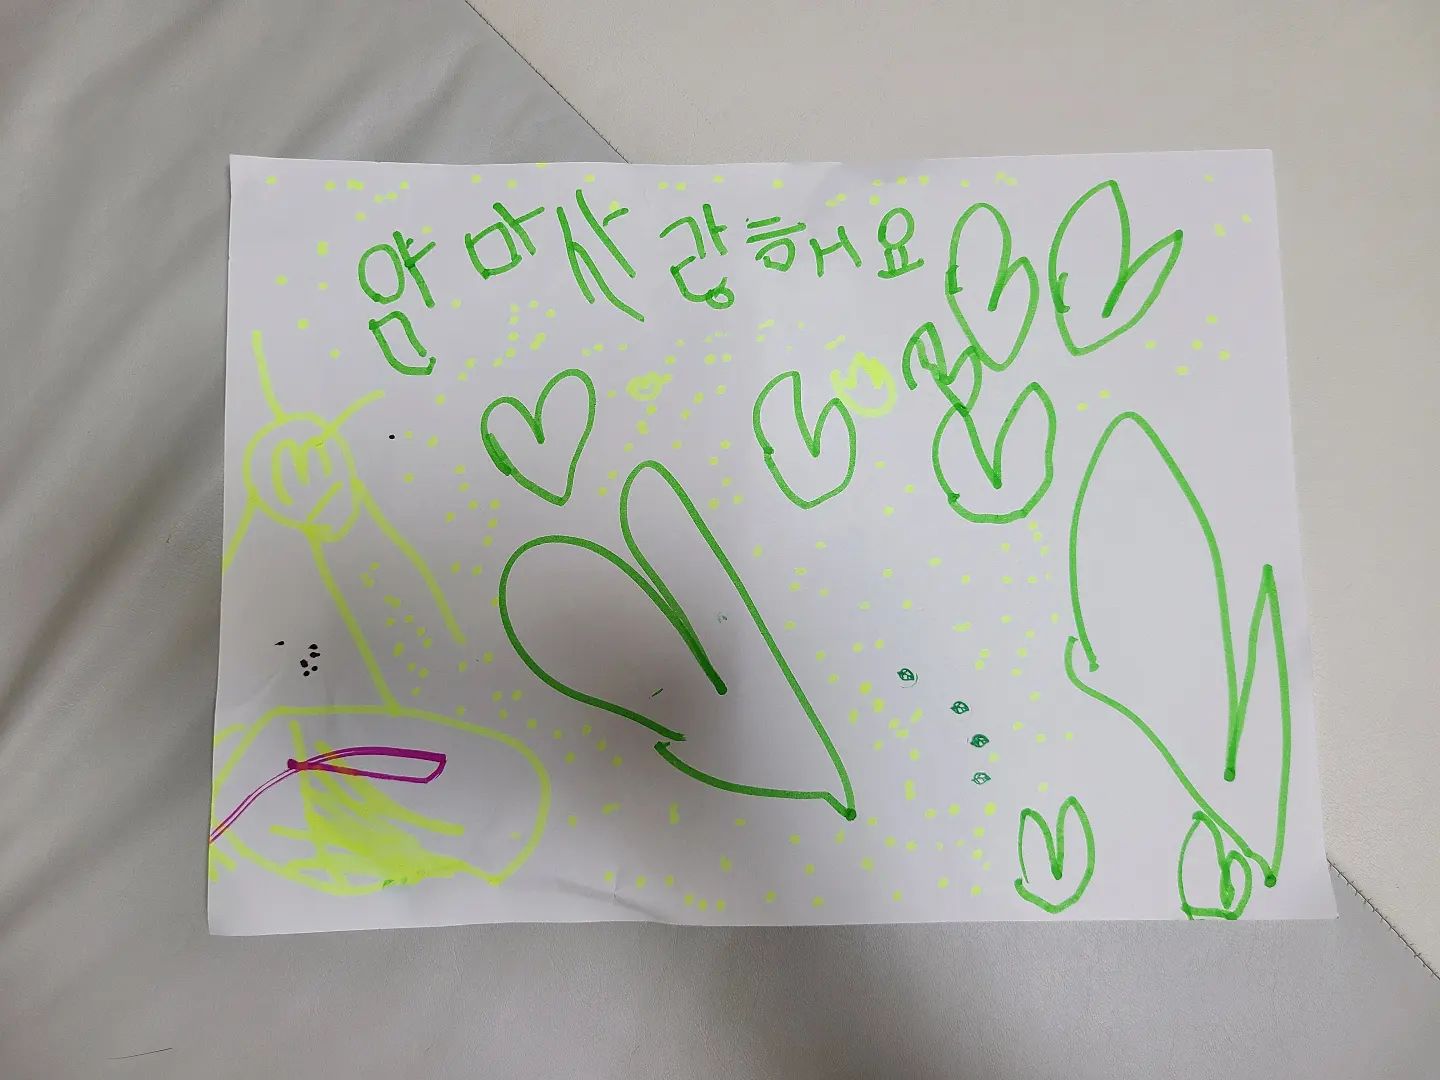 엄마사랑해요